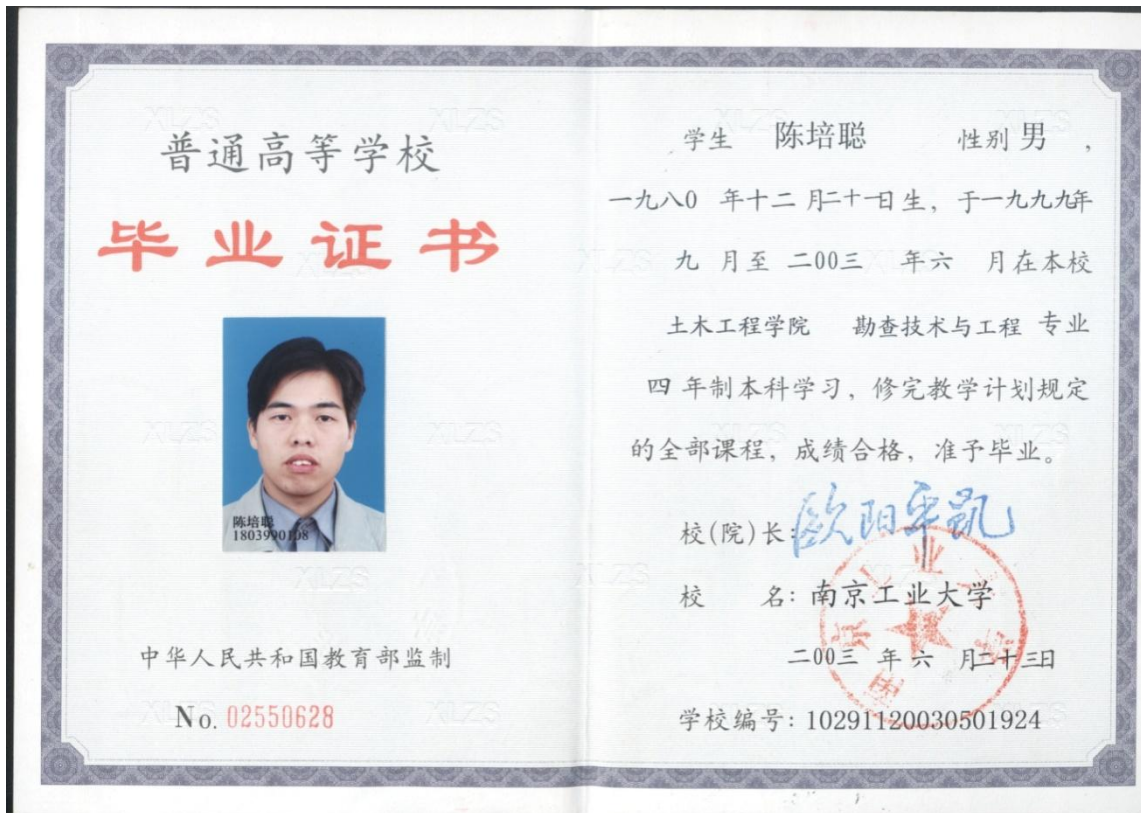 普通高等学校
毕业证书
陈培聪
1803990108
中华人民共和国教育部监制
No. 02550628
学生 陈培聪 性别 男 ,
一九八0 年十二 月二十一日生, 于一九九九年
九 月至 二00三 年六 月在本校
土木工程学院 勘查技术与工程 专业
四 年制本科学习, 修完教学计划规定
的全部课程, 成绩合格, 准予毕业。
校(院)长: 欧阳平凯
校 名: 南京工业大学
二00三 年 六 月二十三日
学校编号: 10291120030501924
南京工业大学
XLZS